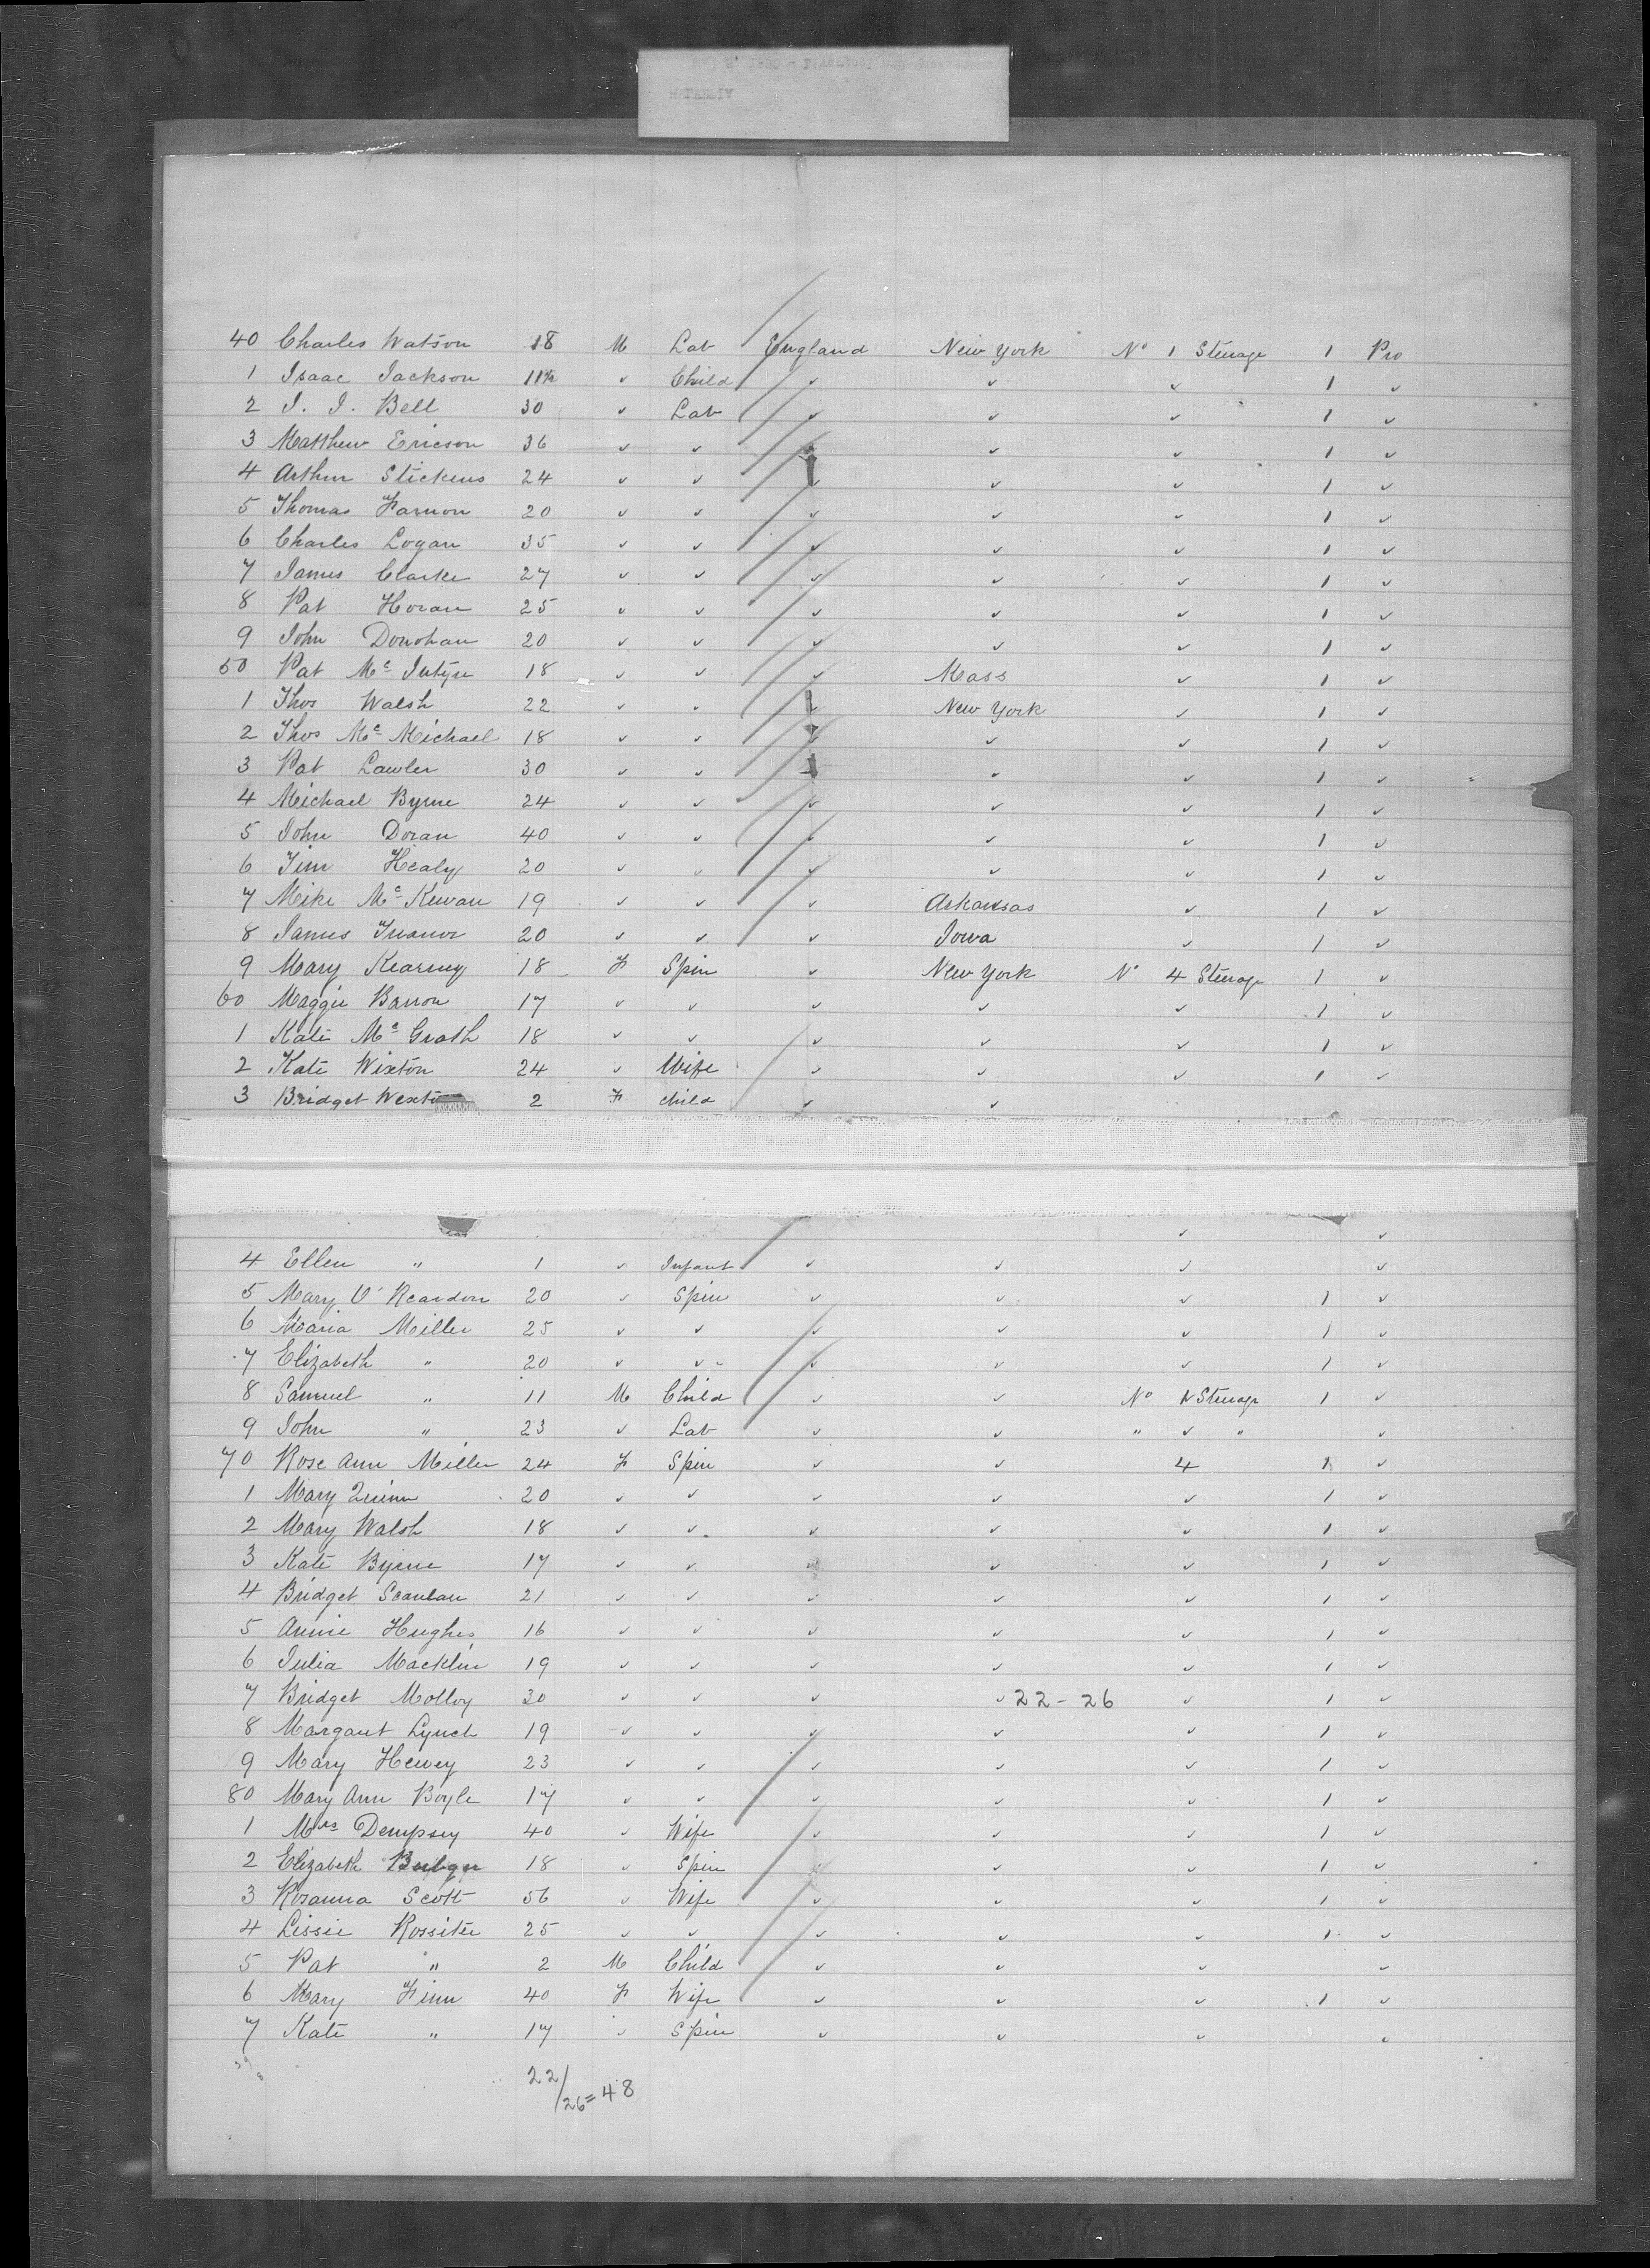 40 Charles Watson 18 M Lab England New York No 1 Steerage 1 Pro
1 Isaac Jackson 11 ✓ Child ✓ ✓ ✓ 1 ✓
2 I. I. Bell 30 ✓ Lab ✓ ✓ ✓ 1 ✓
3 Matthew Ericson 36 ✓ ✓ ✓ ✓ 1 ✓
4 Arthur Stickens 24 ✓ ✓ ✓ ✓ ✓ 1 ✓
5 Thomas Farnon 20 ✓ ✓ ✓ ✓ ✓ 1 ✓
6 Charles Logan 35 ✓ ✓ ✓ ✓ ✓ 1 ✓
7 James Clarke 27 ✓ ✓ ✓ ✓ ✓ 1 ✓
8 Pat Horan 25 ✓ ✓ ✓ ✓ ✓ 1 ✓
9 John Donohan 20 ✓ ✓ ✓ ✓ ✓ 1 ✓
50 Pat Mc Intyre 18 ✓ ✓ ✓ Mass ✓ 1 ✓
1 Thos Walsh 22 ✓ ✓ New York ✓ 1 ✓
2 Thos Mc Michael 18 ✓ ✓ ✓ ✓ 1 ✓
3 Pat Lawler 30 ✓ ✓ ✓ ✓ 1 ✓
4 Michael Byrne 24 ✓ ✓ ✓ ✓ ✓ 1 ✓
5 John Doran 40 ✓ ✓ ✓ ✓ ✓ 1 ✓
6 Tim Healy 20 ✓ ✓ ✓ ✓ ✓ 1 ✓
7 Mike Mc Kewan 19 ✓ ✓ ✓ Arkansas ✓ 1 ✓
8 James 20 ✓ ✓ ✓ Iowa ✓ 1 ✓
9 Mary Kearney 18 F Spin ✓ New York No 4 Steerage 1 ✓
60 Maggie Barron 17 ✓ ✓ ✓ ✓ ✓ 1 ✓
1 Kate Mc Grath 18 ✓ ✓ ✓ ✓ ✓ 1 ✓
2 Kate Wixton 24 ✓ Wife ✓ ✓ ✓ 1 ✓
3 Bridget 2 F child ✓ ✓
✓ ✓
4 Ellen " 1 ✓ Infant ✓ ✓ ✓ ✓
5 Mary O'Reardon 20 ✓ Spin ✓ ✓ ✓ 1 ✓
6 Maria Miller 25 ✓ ✓ ✓ ✓ ✓ 1 ✓
7 Elizabeth " 20 ✓ ✓ ✓ ✓ ✓ 1 ✓
8 Samuel " 11 M Child ✓ ✓ No 1 Steerage 1 ✓
9 John " 23 ✓ Lab ✓ ✓ " ✓ " ✓
70 Rose Ann Miller 24 F Spin ✓ ✓ 4 1 ✓
1 Mary Quinn 20 ✓ ✓ ✓ ✓ ✓ 1 ✓
2 Mary Walsh 18 ✓ ✓ ✓ ✓ ✓ 1 ✓
3 Kate Byrne 17 ✓ ✓ ✓ ✓ ✓ 1 ✓
4 Bridget Scanlan 21 ✓ ✓ ✓ ✓ ✓ 1 ✓
5 Annie Hughes 16 ✓ ✓ ✓ ✓ ✓ 1 ✓
6 Julia Macklin 19 ✓ ✓ ✓ ✓ ✓ 1 ✓
7 Bridget Molloy 30 ✓ ✓ ✓ ✓ 22-26 ✓ 1 ✓
8 Margaret Lynch 19 ✓ ✓ ✓ ✓ ✓ 1 ✓
9 Mary Hewey 23 ✓ ✓ ✓ ✓ ✓ 1 ✓
80 Mary Ann Boyle 17 ✓ ✓ ✓ ✓ ✓ 1 ✓
1 Mrs Dempsey 40 ✓ Wife ✓ ✓ ✓ 1 ✓
2 Elizabeth 18 ✓ Spin ✓ ✓ ✓ 1 ✓
3 Rosanna Scott 56 ✓ Wife ✓ ✓ ✓ 1 ✓
4 Lissie Rossiter 25 ✓ ✓ ✓ ✓ ✓ 1 ✓
5 Pat " 2 M Child ✓ ✓ ✓ ✓
6 Mary Finn 40 F Wife ✓ ✓ ✓ 1 ✓
7 Kate " 17 ✓ Spin ✓ ✓ ✓ ✓
22/26=48